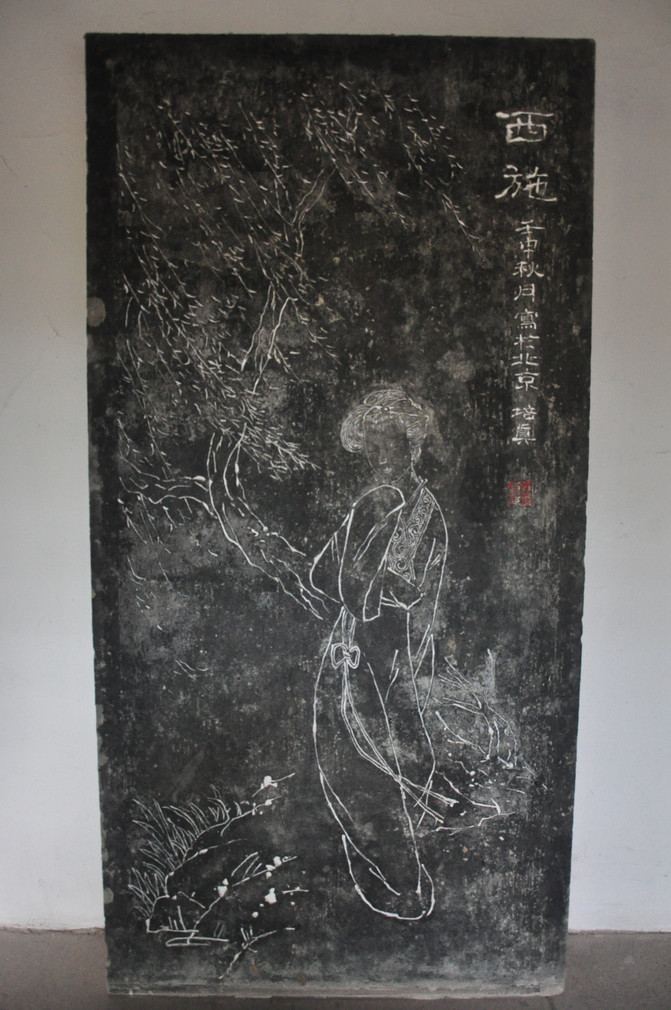 西施
壬申秋月寫於北京 培真